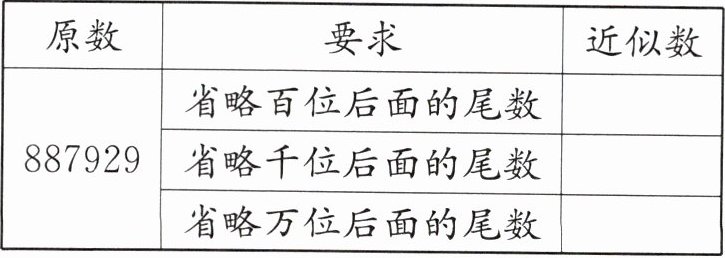 原数 要求 近似数
省略百位后面的尾数
887929 省略千位后面的尾数
省略万位后面的尾数